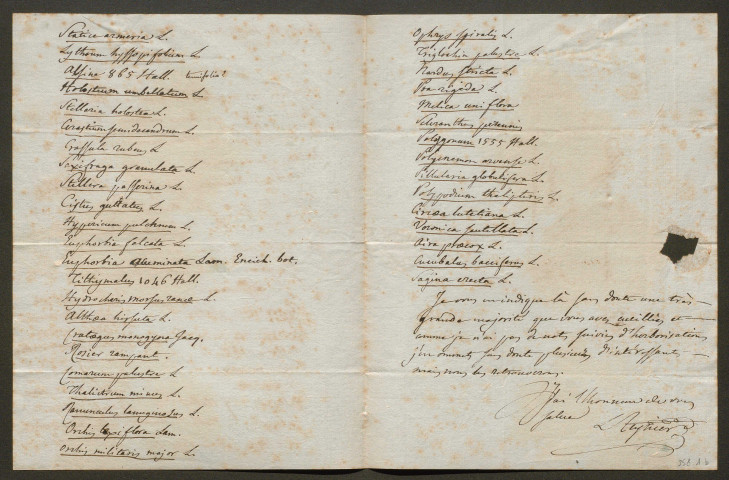 Statice armeria L.
Lythrum hyssopifolium L.
Alsine 865 Hall. tenuifolia?
Holosteum umbellatum L.
Stellaria holostea L.
Cerastium semidecandrum L.
Crassula rubens L
Saxifraga granulata L.
Stellera passerina L.
Cistus guttatus L.
Hypericum pulchrum L.
Euphorbia falcata L.
Euphorbia acuminata Lam. Encicl. bot.
Tithymalus 1046 Hall.
Hydrocharis morsus ranae L.
Althea hirsuta L.
Crataegus monogyna Jacq.
Rosier rampant.
Comarum palustre L.
Thalictrum minus L.
Ranunculus lanuginosus L.
Orchis laxiflora Lam.
Orchis militaris major L.
Ophrys spiralis L.
Triglochin palustre L.
Nardus stricta L.
Poa rigida L.
Melica uniflora
Scleranthus perennis
Polygonum 1555 Hall.
Polycnemon arvense L.
Pillularia globulifera L.
Polypodium thelipteris L.
Circea lutetiana L.
Veronica scutellata L.
Aira præcox L.
Cucubalus bacciferus L.
Sagina erecta L.
Je vous indique là sans doute une très
grande majorité que vous avez cueillies et
comme je n'ai pas de notes suivies d'herborisations
j'en ommets sans doute plusieurs d'intéressantes,
mais nous les retrouverons.
J'ai l'honneur de vous
saluer
L Reynier